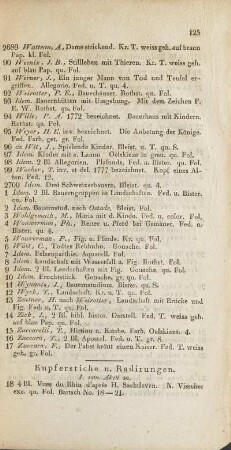 125
2689 Watteau, A, Dame strickend. Kr. T. weiss geh. auf braun
Pap. kl. Fol.
90 Weenix, J. B., Stillleben mit Thieren. Kr. T. weiss geh.
auf blau Pap. qu. Fol.
91 Werner, J., Ein junger Mann von Tod und Teufel er-
griffen. Allegorie. Fed. u. T. qu. 4.
92 Weirotter, F. E., Bauernhäuser. Rothst. qu. Fol.
93 Idem. Bauernhütten mit Umgebung. Mit dem Zeichen F.
E. W. Rothst. qu. Fol.
94 Wille, P. A. 1772 bezeichnet. Bauernhaus mit Kindern.
Rothst. qu. Fol.
95 Weyer, H. E. inv. bezeichnet. Die Anbetung der Könige.
Fed. Farb. get. gr. Fol.
96 de Wit, J., Spielende Kinder. Bleist. u. T. qu. 8.
97 Idem Kinder mit e. Lamm. Oelskizze in grau. qu. Fol.
98 Idem. 2 Bl. Allegorien. Plafonds. Fed. u. Bister. qu. Fol.
99 Wocher, T. inv. et del. 1777 bezeichnet. Kopf eines Al-
ten. Fed. 12.
2700 Idem. Drei Schweizerbauern. Bleist. qu. 4.
1 Idem. 2 Bl. Bauerngruppen in Landschaften. Fed. u. Bister.
qu. Fol.
2 Idem. Bauernstand, nach Ostade. Bleist. Fol.
3 Wohlgemuth, M., Maria mit d. Kinde. Fed. u. color. Fol.
4 Wouwerman, Ph., Reuer u. Pferd bei Gemäuer. Fed. u.
Bister. qu. 4.
5 Wouverman, P., Fig. u. Hunde. Rothst. Fol.
6 Wüst, C., Todtes Rebhuhn. Gouache. Fol.
7 Idem. Erkenparthie. Aquarell. Fol.
8 Idem Landschaft mit Wasserfall u. Fig. Rothst. qu. Fol.
9 Idem. 2 Bl. Landschaften mit Fig. Gouache. qu. Fol.
10 Idem. Fruchtstück. Gouache. gr. qu. Fol.
11 Wynants, J., Baumstudium. Fed. u. Bister. Fol.
12 Wyck, T., Landschaft. Kr. u. T. qu. Fol.
13 Zentner, H. nach Weirotter, Landschaft mit Brücke und
Fig. Fed. u. T. qu. Fol.
14 Zick, J., 2 Bl. bibl. histor. Darstell. Fed. T. weiss geh.
auf blau Pap. qu. Fol.
15 Zuccarelli, T., Hirtinn u. Knabe. Farb. Oelskizze. 4.
16 Zuccaro, T., 2 Bl. Apostel. Fed. u. T. gr. 8.
17 Zuccaro, F., Der Pabst krönt einen Kaiser. Fed. T. weiss
geh. gr. Fol.
Kupferstiche u. Radirungen.
J. van Aken sc.
18 4 Bl. Vues du Rhin d'après H. Sachtleven. N. Visscher
exc. qu. Fol. Bartsch No. 18—21.